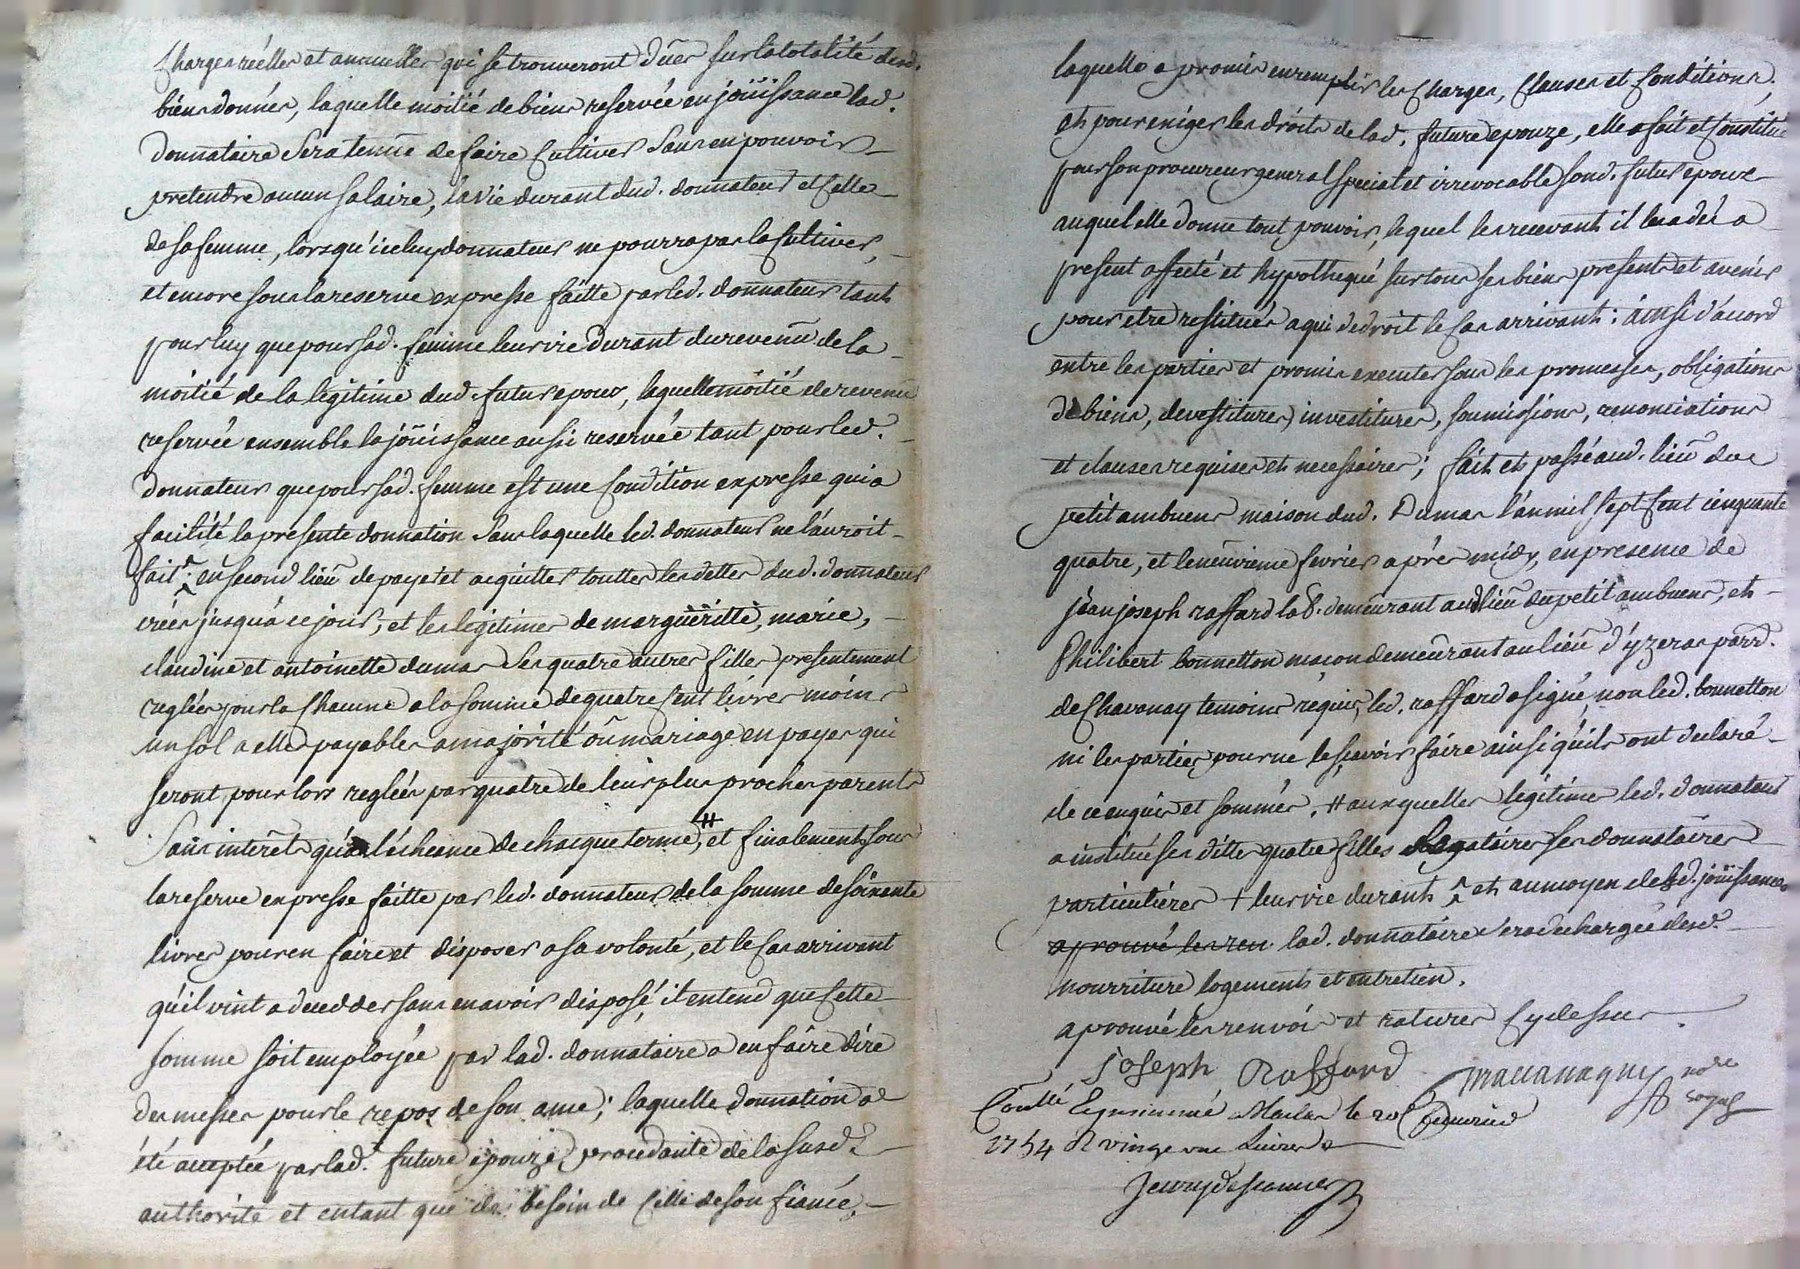 charges réélles et annuelles qui se trouveront düer sur la totalité desd.
biens donnés, laquelle moitié de biens reservée en joüissance lad.
donnataire sera tenüe de faire cultiver sans en pouvoir
pretendre aucun salaire, la vie durant dud. donnateur et celle
de sa femme, lorsqu'iceluy donnateur ne pourra pas la cultiver,
et encore sous la reserve expresse faitte par led. donnateur tant
pour luy que pour sad. femme leur vie durant du revenü de la
moitié de la légitime dud. futur epoux, laquelle moitié de revenu
reservée ensemble la joüissance aussi reservée tant pour led.
donnateur que pour sad. femme est une condition expresse qui a
facilité la presente donnation sans laquelle led. donnateur ne l'auroit
fait. en second lieu de payer et acquitter touttes les dettes dud. donnateur
créés jusquà ce jour, et les légitimes de marguëritte, marie,
claudine et antoinette dumas ses quatre autres filles presentement
reglées pour la chacune a la somme de quatre cent livres moins
un sol a elles payables a majorité oü mariage en payes qui
seront pour lors reglées par quatre de leurs plus proches parents
sans interèts qu'a l'échéence de chasque terme, # et finalement sous
la reserve expresse faitte par led. donnateur de la somme de soixante
livres pour en faire et disposer a sa volonté, et le cas arrivant
qu'il vint a deceder sans en avoir disposé, il entend que cette
somme soit employée par lad. donnataire a en faire dire
des messes pour le repos de son ame; laquelle donnation a
été acceptée par lad. future épouze procedante de la susd.
authorité et entant que de besoin de celle de son fiancé,
laquelle a promis en remplir les charges, clauses et conditions,
et pour exiger les droits de lad. future epouze, elle a fait et constitué
pour son procureur general special et irrevocable sond. futur epoux
auquel elle donne tout pouvoir, lequel les recevant il les a dès a
present affecté et hypothequé sur tous ses biens presents et avenir
pour etre restitués a qui de droit le cas arrivant: ainsi d'acord
entre les parties et promis executer sous les promesses, obligations
de biens, devestitures, investitures, soumissions, renonciations
et clauses requises et necessaires; fait et passé aud. lieu du
petit ambuens maison dud. Dumas l'an mil sept cent cinquante
quatre, et le neuvieme fevrier après midy, en presence de
jean joseph raffard lab. demeurant aud. lieu du petit ambuens, et
Philibert bonnetton macon demeurant au lieu d'yzeras parr.
de Chavanay temoins requis, led. raffard a signé, non led. bonnetton
ni les parties pour ne le sçavoir faire ainsi qu'ils ont declaré
de ce enquis et sommés. # auxquelles légitimes led. donnateur
a institué ses dittes quatre filles ses donnataires
particulières + leur vie durant et au moyen de lad. joüissance
aprouvé les ren lad. donnataire sera dechargée desd.
nourriture logements et entretien.
aprouvé les renvois et ratures cy dessus.
joseph Raffard
Conttlé Maclas le 20 fevrier
1754 R vingt une livres